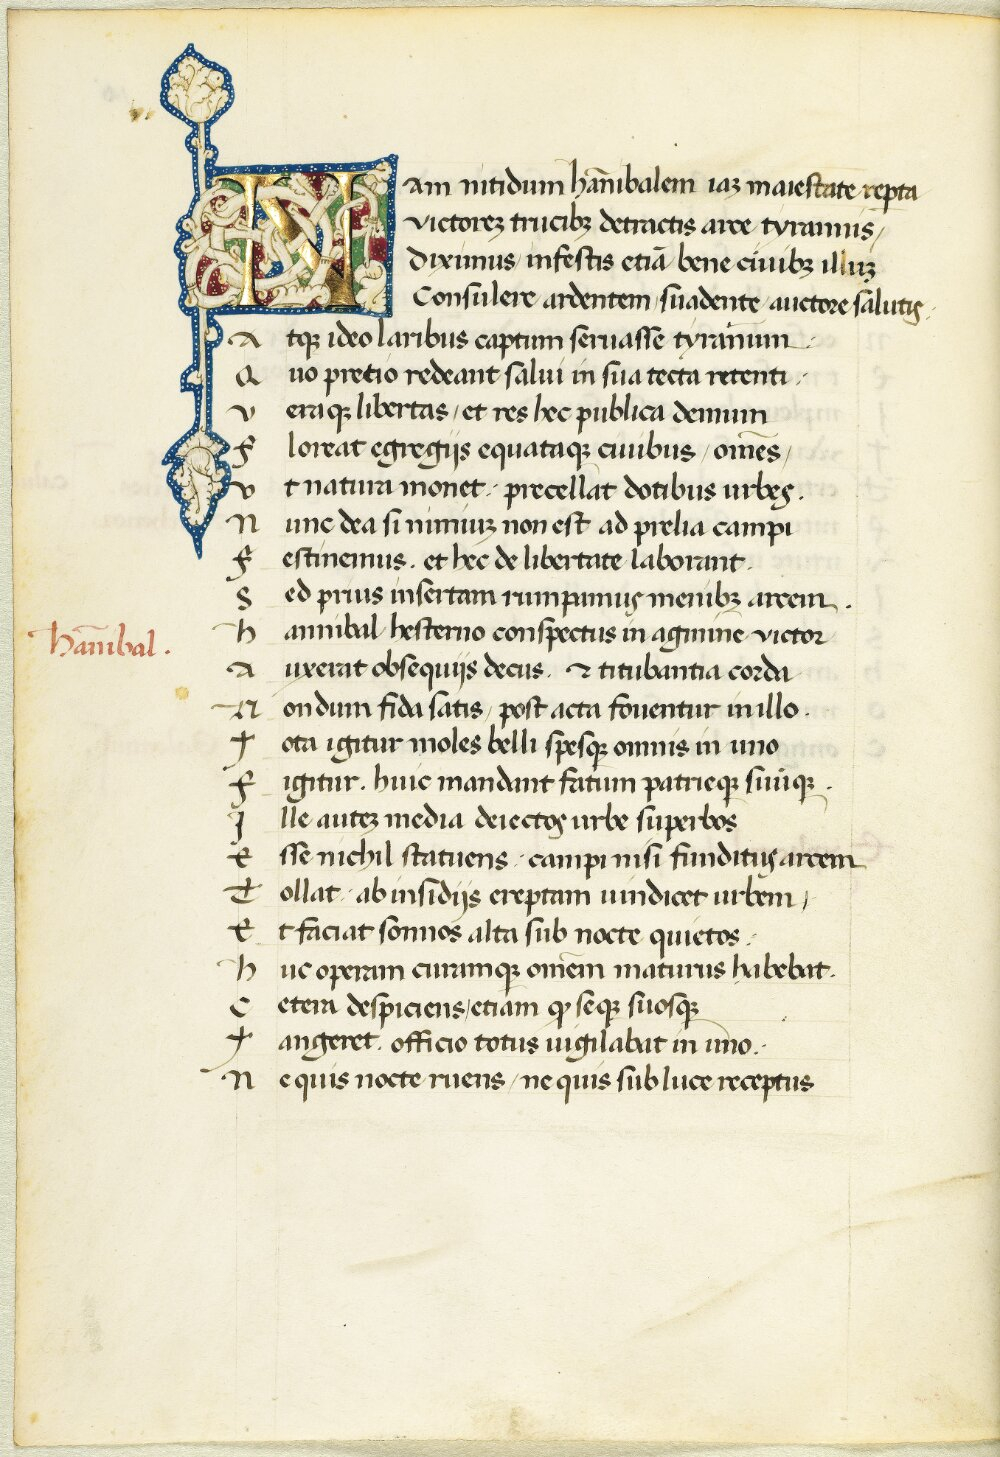 Nam nitidum hãnibalem iaꝫ maiestate repta
victoreꝫ trucibꝫ detractis arce tyrannis /
Diximus / infestis etiã bene ciuibꝫ illuꝫ
Consulere ardentem / suadente / auctore salutis .
Atqꝫ ideo laribus captum seruasse tyrãnum .
Quo pretio redeant salui in sua tecta retenti .
veraqꝫ libertas / et res hec publica demum
Floreat egregijs equataqꝫ ciuibus / oms̃ /
vt natura monet . precellat dotibus urbes .
Nunc dea si nimiuꝫ non est ad prelia campi
Festinemus . et hec de libertate laborant .
Sed prius insertam rumpamus menibꝫ arcem .
hannibal hesterno conspectus in agmine victor
hãnibal .
auxerat obsequijs decus . ⁊ titubantia corda
Nondum fida satis / post acta fouentur in illo .
Tota igitur moles belli spesqꝫ omnis in uno
Figitur . huic mandant fatum patrieqꝫ suũqꝫ .
Ille auteꝫ media deiectos urbe superbos
Esse nichil statuens . campi nisi funditus arcem
Tollat . ab insidijs ereptam uindicet urbem /
Et faciat sonnos alta sub nocte quietos .
huc operam curamqꝫ omẽm maturus habebat .
Cetera despiciens / etiam ꝙ seqꝫ suosqꝫ
Tangeret . officio totus uigilabat in uno .
Ne quis nocte ruens / ne quis sub luce receptus